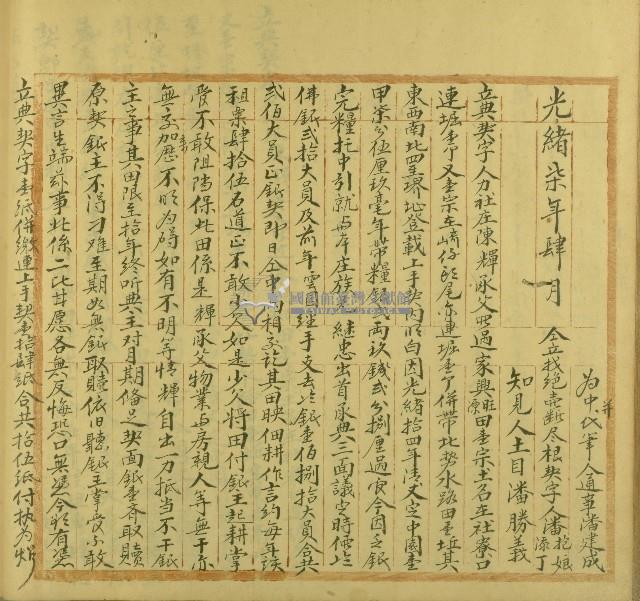 并
為中代筆人通事潘建成
光緒柒年肆月 仝立找絕壹斷尽根契字人潘抱娘
添丁
知見人土目潘勝義
立典契字人力社庄陳輝承父明遇家興旺田壹宗土名在社寮口
連堀壹𫝀又壹宗在崎仔頭尾東連堀壹𫝀併帶北勢水路田壹坵其
東西南北四至界址登載上手契內明白因光緒拾四年清丈定中國壹
甲柒分伍厘玖毫年帶糧銀 兩玖錢弍分捌厘過官今因乏銀
完糧托中引就與本庄族 継忠出首承典三面議定時價
佛銀弍拾大員及前年雲國経手支去佛銀壹佰捌拾大員合共
弍佰大員正銀契即日仝中兩相交訖其田映佃耕作言約每年該
租粟肆拾伍石道正不敢少欠如是少欠將田付銀主起耕掌
管不敢阻擋保此田係是輝承父物業與房親人等無干亦
無交加來歷不明為碍如有不明等情輝自出一力抵当不干銀
主之事其田限至拾年終听典主对月期俻足契面銀壹齊取贖
原契銀主不得刁难至期如無銀取贖依旧聽銀主掌管不敢
異言生端茲事此係二比甘愿各無反悔恐口無憑今欲有憑
立典契字壹紙併繳連上手契壹拾肆紙合共拾伍紙付执為炤
國史館臺灣文獻館
TAIWAN HISTORICA